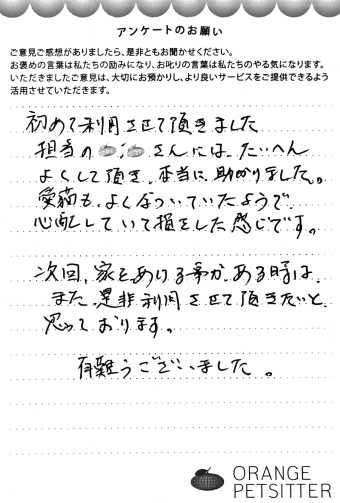 アンケートのお願い
ご意見ご感想がありましたら、是非ともお聞かせください。
お褒めの言葉は私たちの励みになり、お叱りの言葉は私たちのやる気になります。
いただきましたご意見は、大切にお預かりし、より良いサービスをご提供できるよう
活用させていただきます。
初めて利用させて頂きました
担当の さんには、たいへん
よくして頂き、本当に、助かりました。
愛猫も、よくなついていたようで、
心配していて損をした感じです。
次回、家をあける事が、ある時は、
また、是非利用させて頂きたいと、
思っております。
有難うございました。
ORANGE
PETSITTER